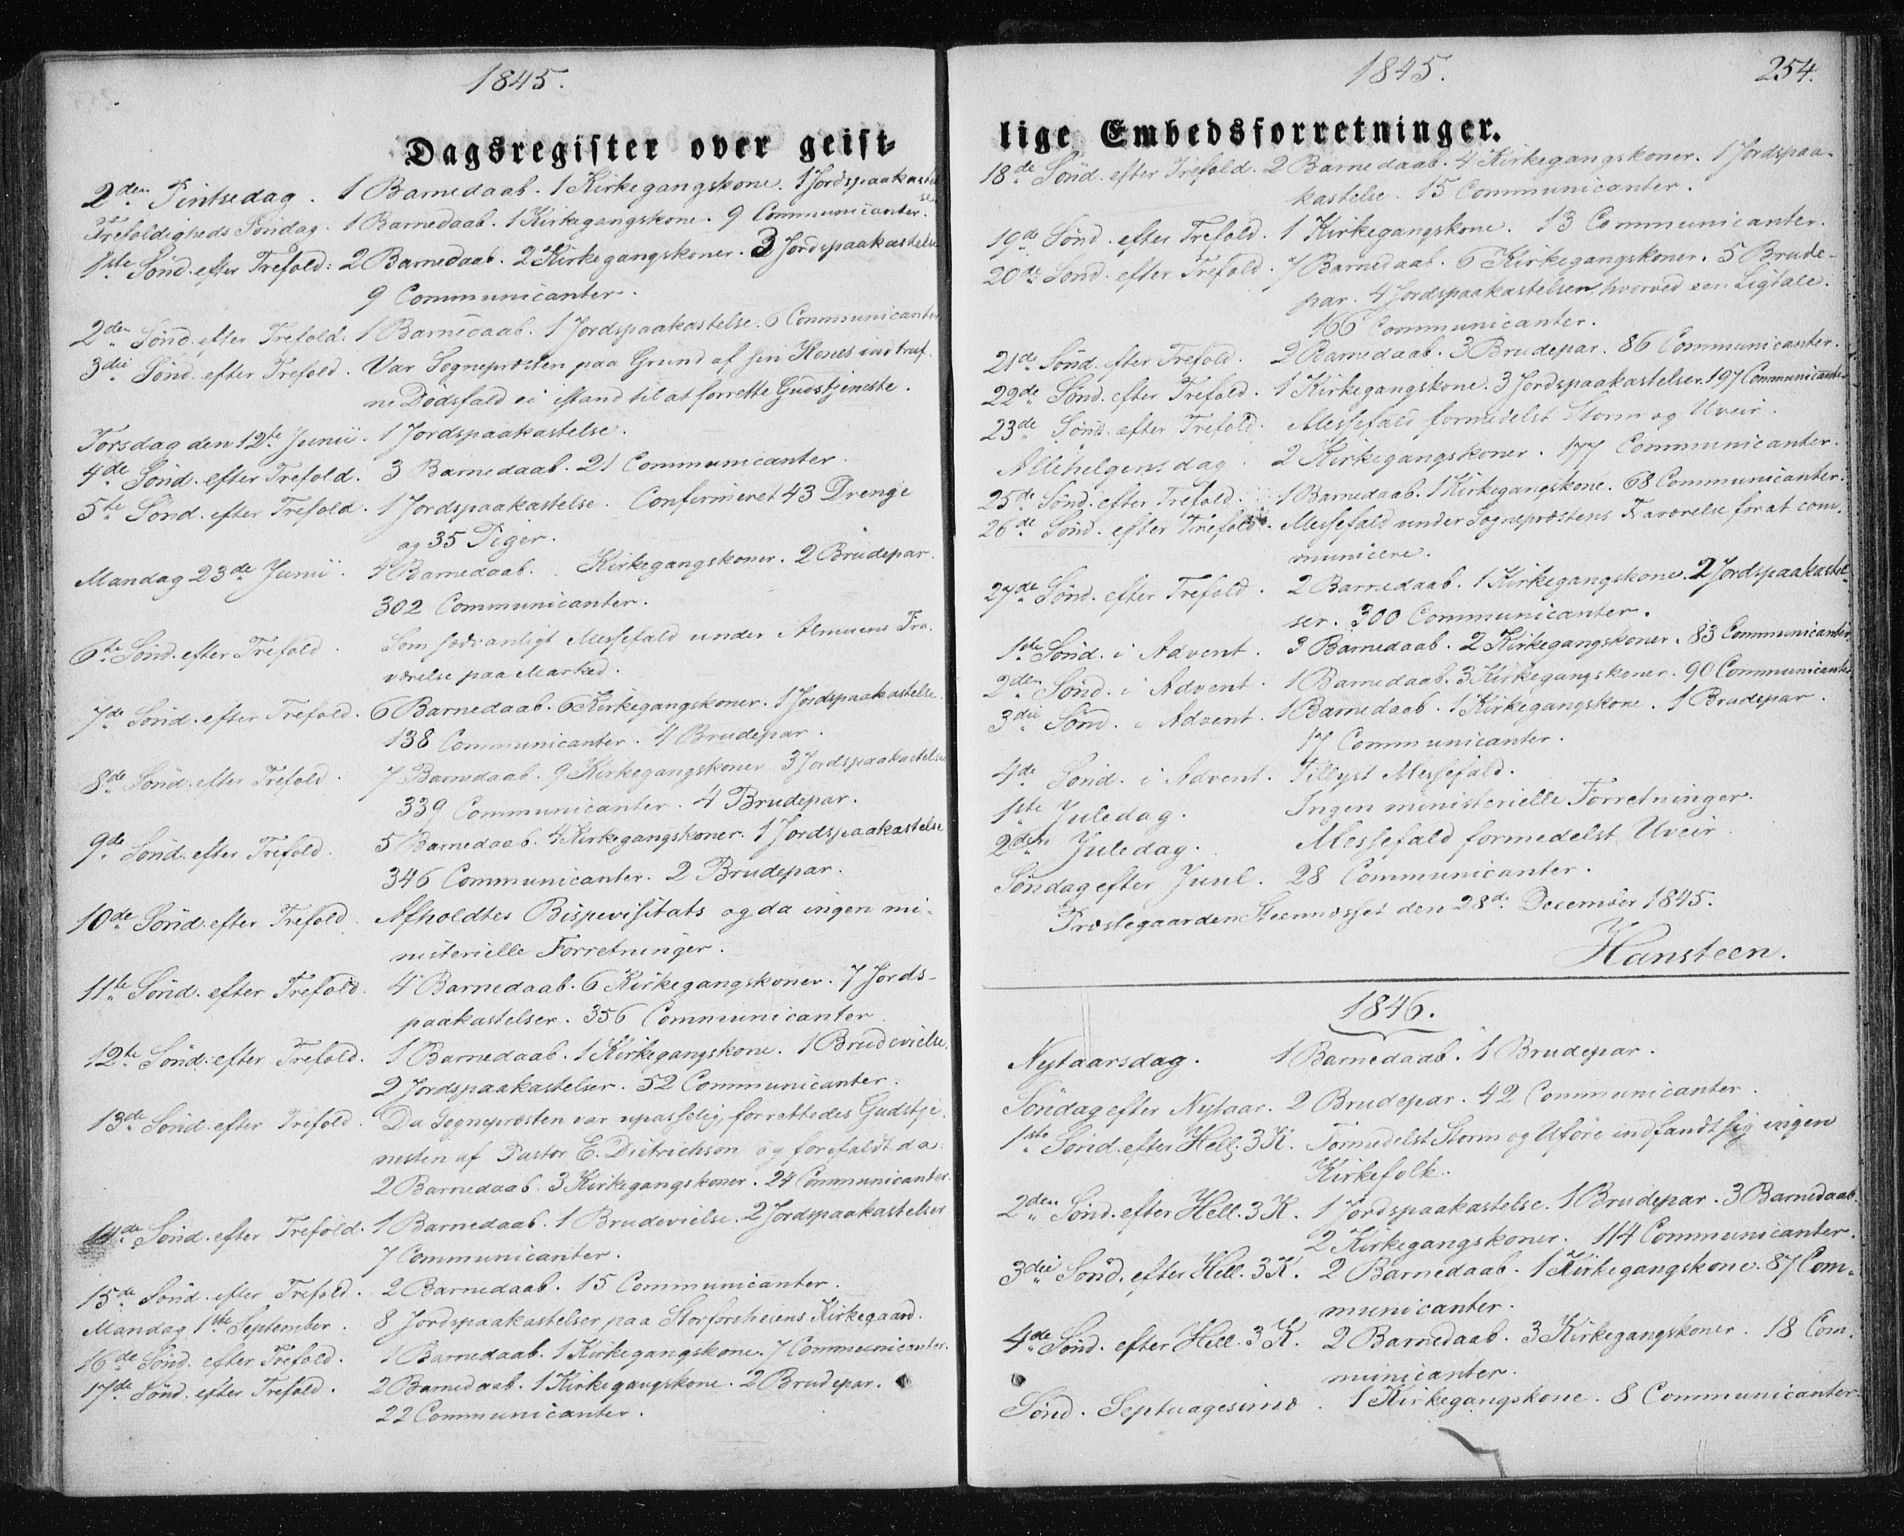 1845.
Dagsregister over geist-
2den Pintsedag. 1 Barnedaab. 1 Kirkegangskone. 1 Jordspaakastelse
Trefoldigheds Søndag. 1 Barnedaab. 1 Kirkegangskone. 9 Communicanter.
1ste Sönd. efter Trefold: 2 Barnedaab. 2 Kirkegangskoner. 3 Jordspaakastelse
9 Communicanter.
2den Sönd. efter Trefold: 1 Barnedaab. 1 Jordspaakastelse. 6 Communicanter
3die Sönd. efter Trefold. Var Sogneprosten paa Grund af sin Kones indtruf-
ne Dødsfald ei istand til at forrette Gudstjeneste.
Torsdag den 12te Junii. 1 Jordspaakastelse.
4de Sönd. efter Trefold. 3 Barnedaab. 21 Communicanter.
5te Sönd. efter Trefold. 1 Jordspaakastelse. Confirmeret 43 Drenge
og 35 Piger.
Mandag 23de Junii. Barnedaab. Kirkegangskoner. 2 Brudepar.
302 Communicanter.
6te Sönd. efter Trefold. Som sædvanligt Messefald under Almuens Fra-
værelse paa Marked.
7de Sönd. efter Trefold. 6 Barnedaab. 6 Kirkegangskoner. 1 Jordspaakastelse.
138 Communicanter. 4 Brudepar.
8de Sönd. efter Trefold. 7 Barnedaab. 9 Kirkegangskoner 3 Jordspaakastelser
339 Communicanter. 4 Brudepar.
9de Sönd. efter Trefold. 5 Barnedaab. 4 Kirkegangskoner. 1 Jordspaakastelse
346 Communicanter. 2 Brudepar.
10de Sönd. efter Trefold. Afholdtes Bispevisitats og da ingen mi-
nisterielle Forretninger.
11te Sönd. efter Trefold. 4 Barnedaab. 6 Kirkegangskoner. 7 Jords-
paakastelser. 356 Communicanter.
12te Sönd. efter Trefold. 1 Barnedaab. 1 Kirkegangskone. 1 Brudevielse.
2 Jordspaakastelser. 52 Communicanter.
13de Sönd. efter Trefold. Da Sogneprosten var upasselig, forrettedes Gudstje-
nesten af Pastor E. Dietrichson og forefaldt da:
2 Barnedaab. 3 Kirkegangskoner. 24 Communicanter.
14de Sönd. efter Trefold. 1 Barnedaab. 1 Brudevielse. 2 Jordspaakastelser
7 Communicanter.
15de Sönd. efter Trefold. 2 Barnedaab. 15 Communicanter.
Mandag 1ste September. 8 Jordspaakastelser paa Storforsheiens Kirkegaard.
16de Sönd. efter Trefold. 1 Barnedaab. 1 Kirkegangskone. 7 Communicanter.
17de Sönd. efter Trefold. 2 Barnedaab. 1 Kirkegangskone. 2 Brudepar.
22 Communicanter.
1845.
254.
lige Embedsforretninger.
18de Sönd. efter Trefold. 2 Barnedaab. 4 Kirkegangskoner. 1 Jordspaa-
kastelse. 15 Communicanter.
19de Sönd. efter Trefold. 1 Kirkegangskone. 13 Communicanter.
20de Sönd. efter Trefold. 7 Barnedaab. 6 Kirkegangskoner. 5 Brude-
par. 4 Jordspaakastelser, hvorved een Ligtale.
166 Communicanter.
21de Sönd. efter Trefold. 2 Barnedaab. 3 Brudepar. 86 Communicanter.
22de Sönd. efter Trefold. 1 Kirkegangskone. 3 Jordspaakastelser. 197 Communicanter
23de Sönd. efter Trefold. Messefald formedelst Storm og Uveir.
Allehelgensdag. 2 Kirkegangskoner. 177 Communicanter.
25de Sönd. efter Trefold. 1 Barnedaab. 1 Kirkegangskone. 68 Communicanter.
26de Sönd. efter Trefold. Messefald under Sogneprostens Fraværelse for at com-
municere.
27de Sönd. efter Trefold. 2 Barnedaab. 1 Kirkegangskone. 2 Jordspaakastel-
ser. 300 Communicanter.
1ste Sönd. i Advent. 3 Barnedaab. 2 Kirkegangskoner. 83 Communicanter.
2den Sönd. i Advent. 1 Barnedaab. 3 Kirkegangskoner. 90 Communicanter
3die Sönd. i Advent. 1 Barnedaab. 1 Kirkegangskone. 1 Brudepar.
17 Communicanter.
4de Sönd. i Advent. Tillyst Messefald.
1ste Juledag. Ingen ministerielle Forretninger.
2den Juledag. Messefald formedelst Uveir.
Søndag efter Juul. 28 Communicanter.
Præstegaarden den 28de December 1845.
Hansteen.
1846.
Nytaarsdag. 1 Barnedaab. 1 Brudepar.
Søndag efter Nytaar. 2 Brudepar. 42 Communicanter.
1ste Sönd. efter Hell. 3 K. Formedelst Storm og Uføre indfandt sig ingen
Kirkefolk.
2den Sönd. efter Hell. 3 K. 1 Jordspaakastelse. 1 Brudepar. 3 Barnedaab.
2 Kirkegangskoner. 114 Communicanter.
3die Sönd. efter Hell. 3 K. 2 Barnedaab. 1 Kirkegangskone. 87 Com-
municanter.
4de Sönd. efter Hell. 3 K. 2 Barnedaab. 3 Kirkegangskoner. 18 Com-
municanter.
Sönd. Septuagesima. 1 Kirkegangskone. 8 Communicanter.